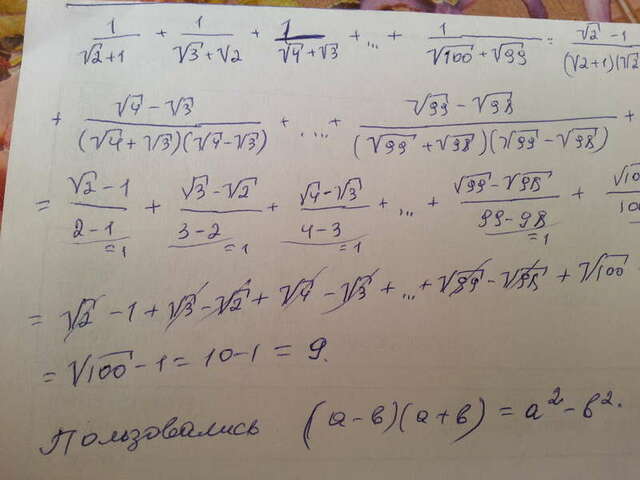 1/(√2+1) + 1/(√3+√2) + 1/(√4+√3) + ... + 1/(√100+√99) = (√2-1)/((√2+1)(√2
+ (√4-√3)/((√4+√3)(√4-√3)) + .... + (√99-√98)/((√99+√98)(√99-√98)) +
= (√2-1)/(2-1) =1 + (√3-√2)/(3-2) =1 + (√4-√3)/(4-3) =1 + ... + (√99-√98)/(99-98) =1 + √10/10
= √2 - 1 + √3 - √2 + √4 - √3 + ... + √99 - √98 + √100
= √100 - 1 = 10 - 1 = 9.
Пользовались (а-в)(а+в) = а²-в².